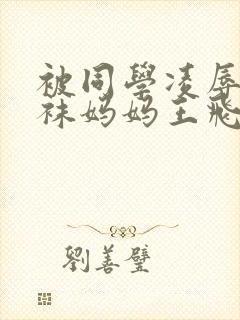 被同學凌辱
袜妈妈王飛
劉善璧